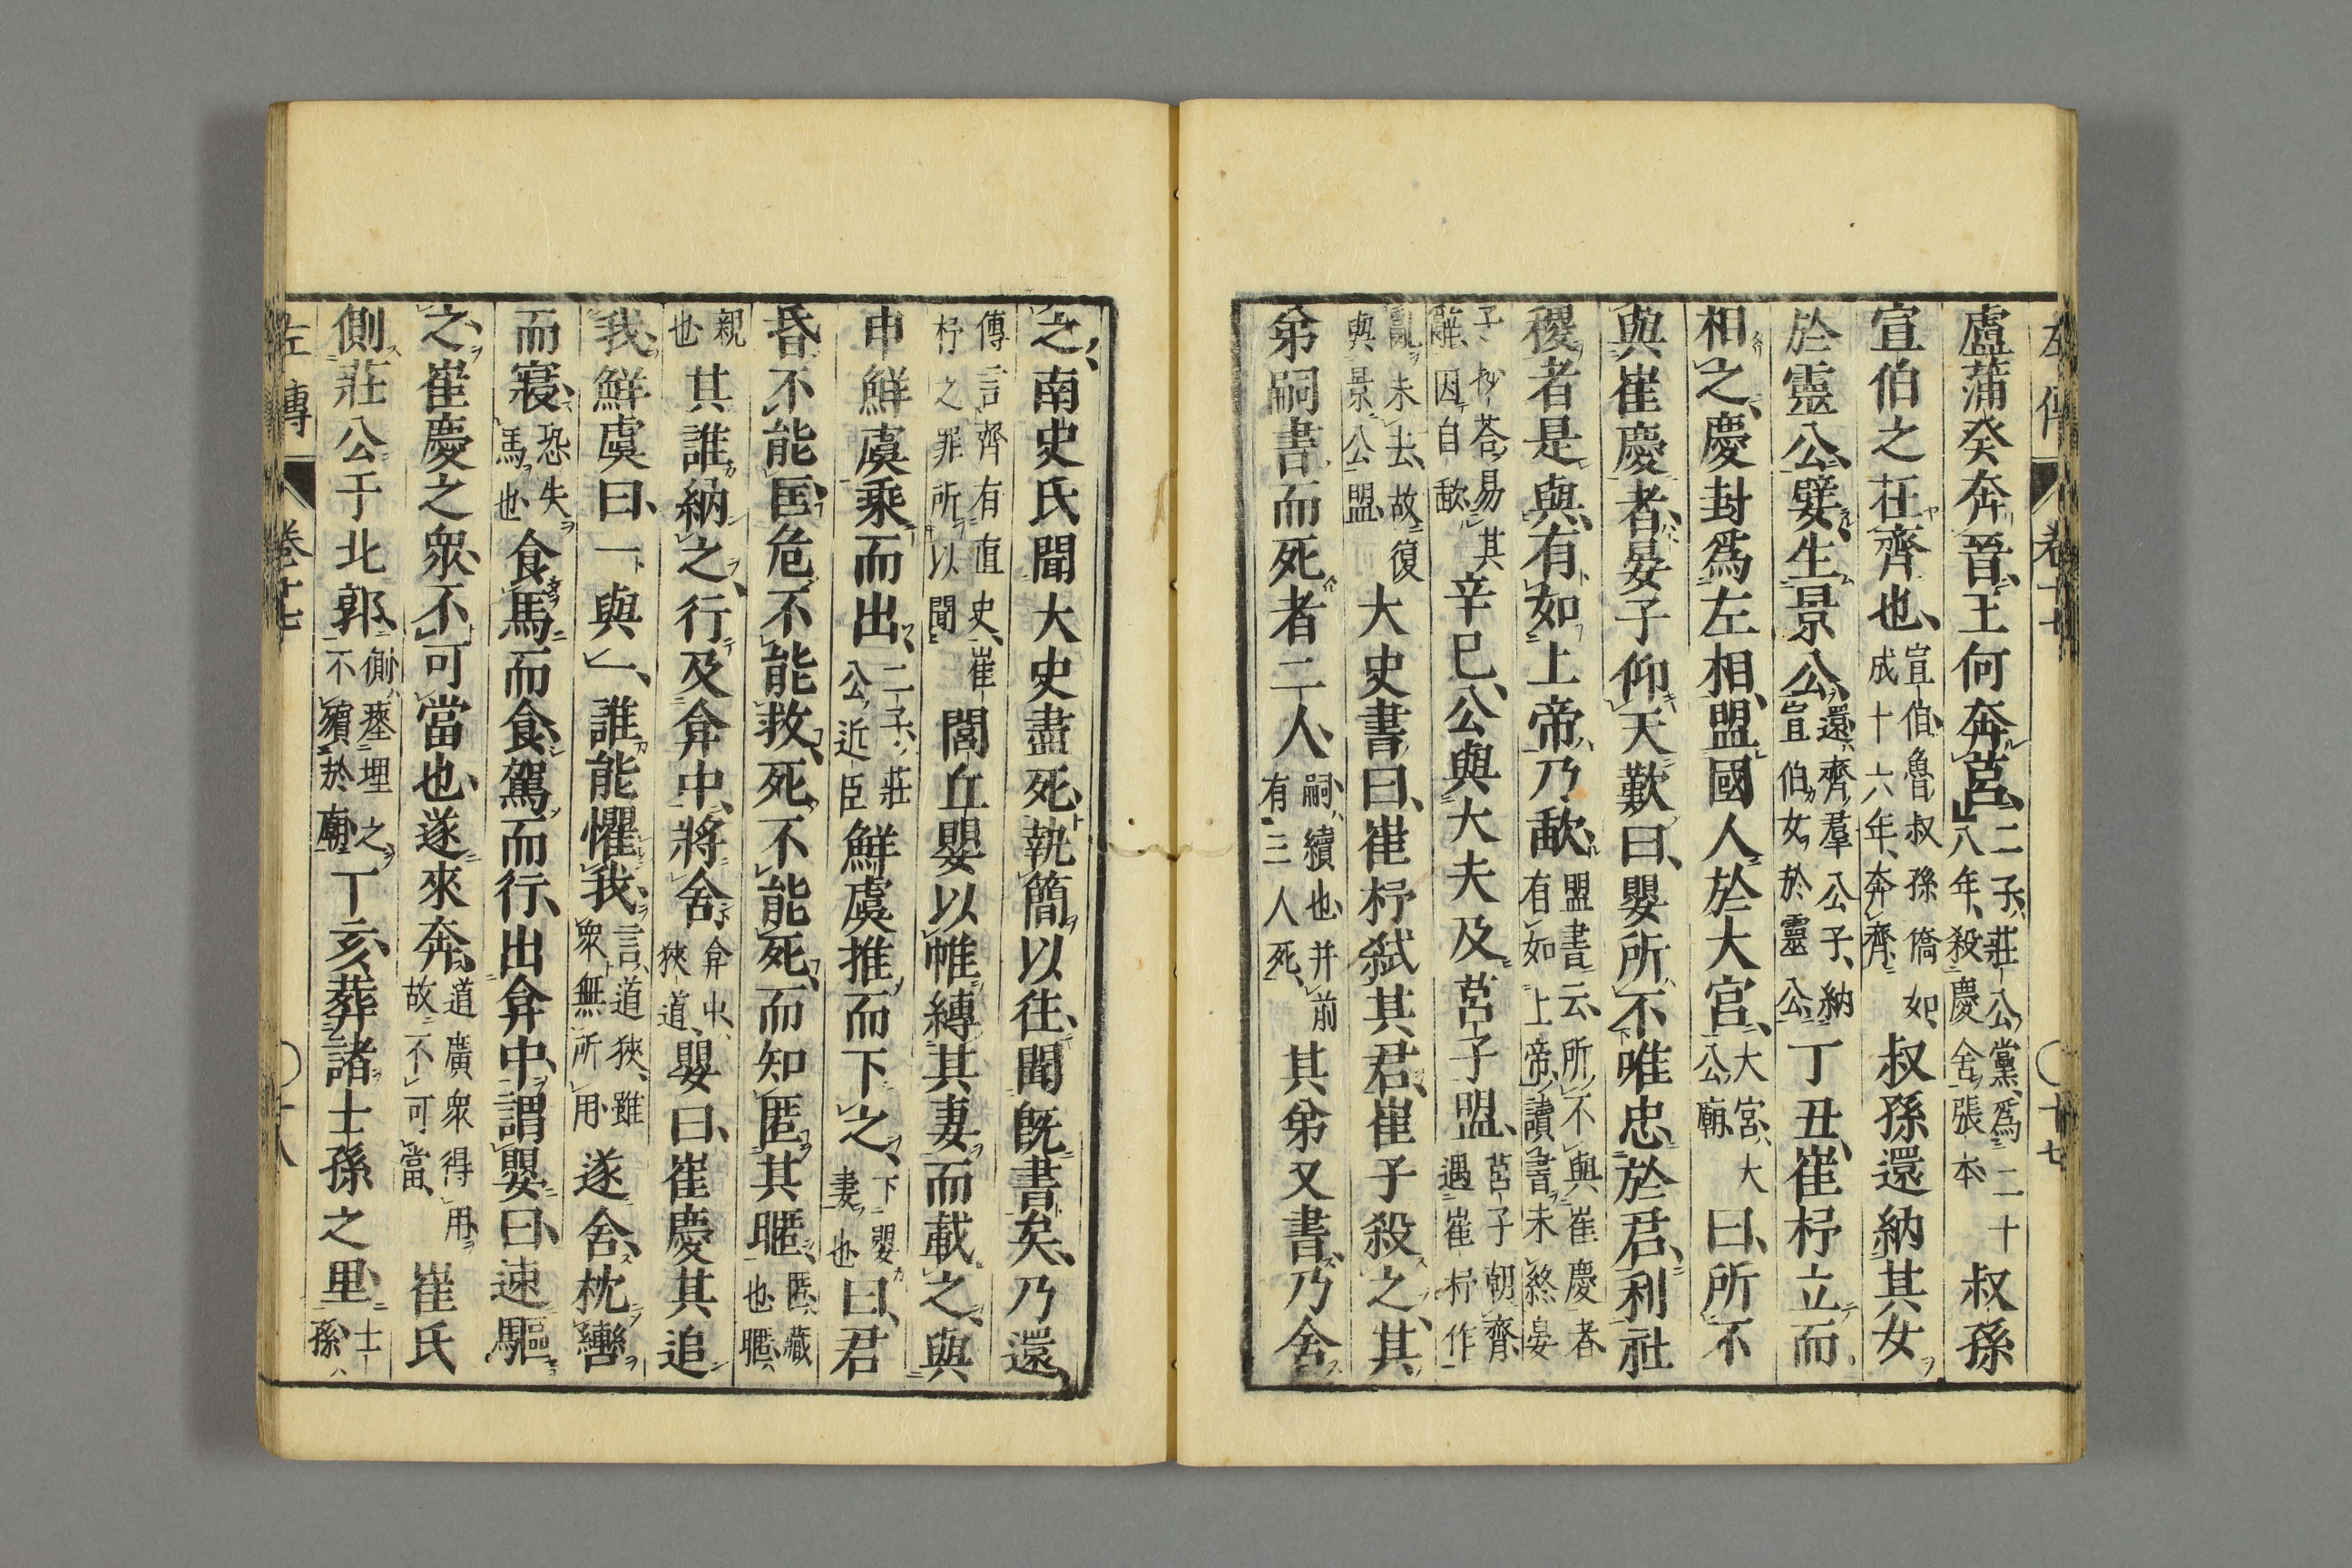 盧蒲癸奔晉王何奔莒二子莊公黨爲二十八年殺慶舍張本叔孫
宣伯之在齊也宣伯魯叔孫僑如成十六年奔齊叔孫還納其女
於靈公嬖生景公還齊羣公子納宣伯女於靈公丁丑崔杼立而
相之慶封爲左相盟國人於大宮大宮大公廟曰所不
與崔慶者晏子仰天歎曰嬰所不唯忠於君利社
稷者是與有如上帝乃歃盟書云所不與崔慶者有如上帝讀書未終晏
子抄荅易其辭因自歃辛巳公與大夫及莒子盟莒子朝齊遇崔杼作
亂未去故復與景公盟大史書曰崔杼弑其君崔子殺之其
弟嗣書而死者二人嗣續也并前有三人死其弟又書乃舍
之南史氏聞大史盡死執簡以往聞既書矣乃還
傳言齊有直史崔杼之罪所以聞閭丘嬰以帷縛其妻而載之與
申鮮虞乘而出二子莊公近臣鮮虞推而下之下嬰妻也曰君
昏不能匡危不能救死不能死而知匿其暱匿藏也暱
親也其誰納之行及弇中將舍弇中狹道嬰曰崔慶其追
我鮮虞曰一與一誰能懼我言道狹雖衆無所用遂舍枕轡
而寢恐失馬也食馬而食駕而行出弇中謂嬰曰速驅
之崔慶之衆不可當也遂來奔道廣衆得用故不可當崔氏
側莊公于北郭側瘞埋之不殯於廟丁亥葬諸士孫之里士孫
左傳 卷十七 十八